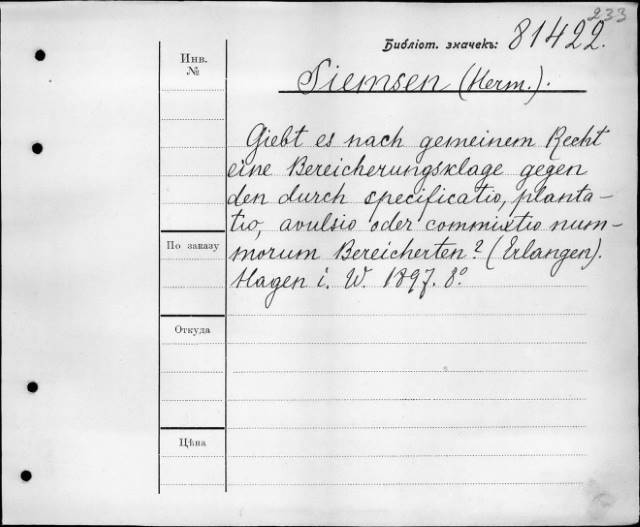 233
Библіот. значекъ: 81422.
Инв.
№
Siemsen (Herm.).
Giebt es nach gemeinem Recht
eine Bereicherungsklage gegen
den durch specificatio, planta-
tio, avulsio oder commixtio num-
morum Bereicherten? (Erlangen).
Hagen i. W. 1897. 8°.
По заказу
Откуда
Цѣна